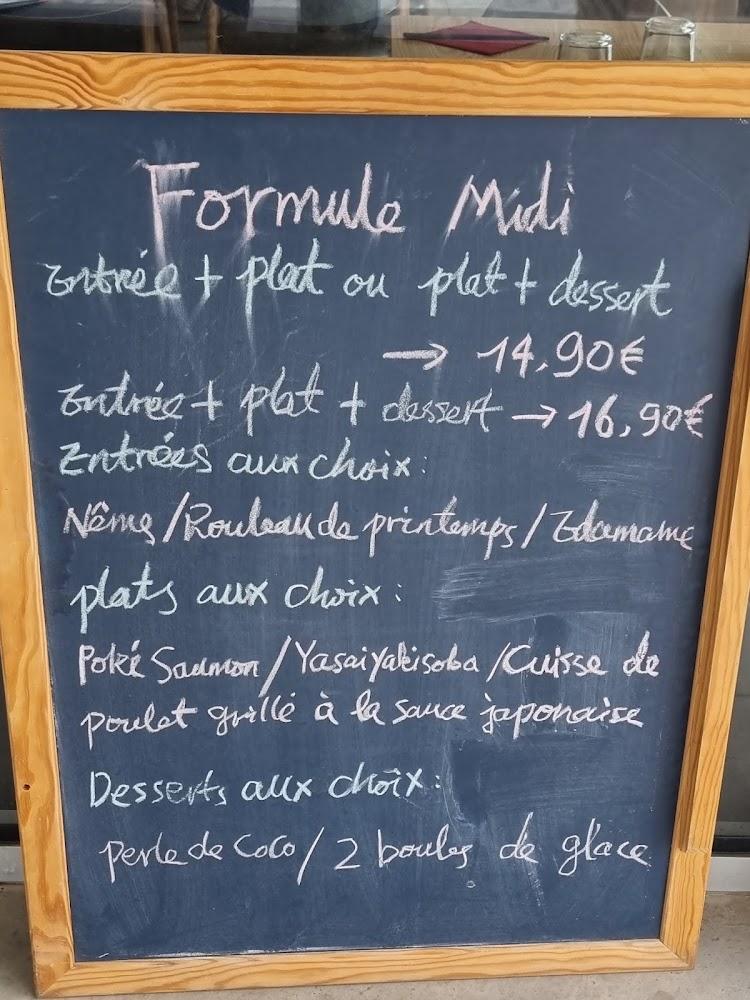 Formule Midi
Entrée + plat ou plat + dessert
→ 14,90€
Entrée + plat + dessert → 16,90€
Entrées aux choix :
Nêms / Rouleau de printemps / Edamame
plats aux choix :
Poké Saumon / Yasai Yakisoba / Cuisse de
poulet grillé à la sauce japonaise
Desserts aux choix :
perle de coco / 2 boules de glace